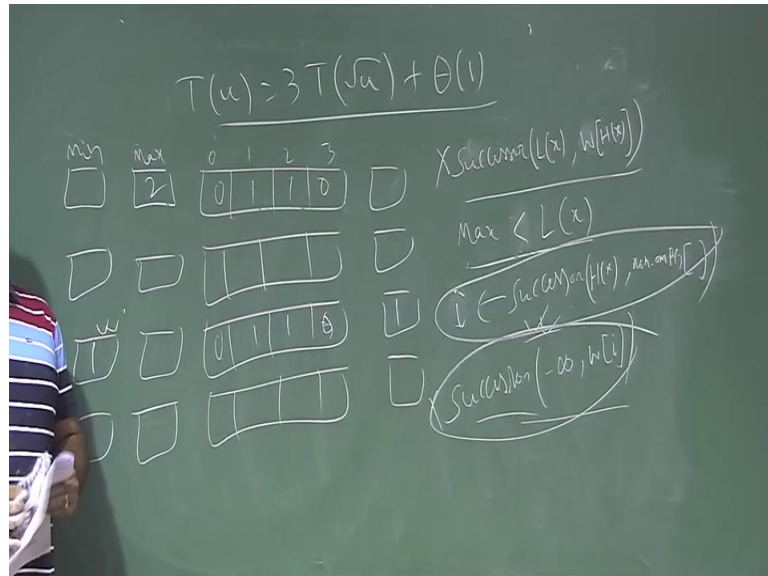 T(u) = 3 T(√u) + θ(1)
Min Max 0 1 2 3
2 0 1 1 0
X Successor (L(x), W[H(x)])
Max < L(x)
i ← Successor (H(x), non-empty[ ])
W
1 0 1 1 0 1
X Successor (-∞, W[i])